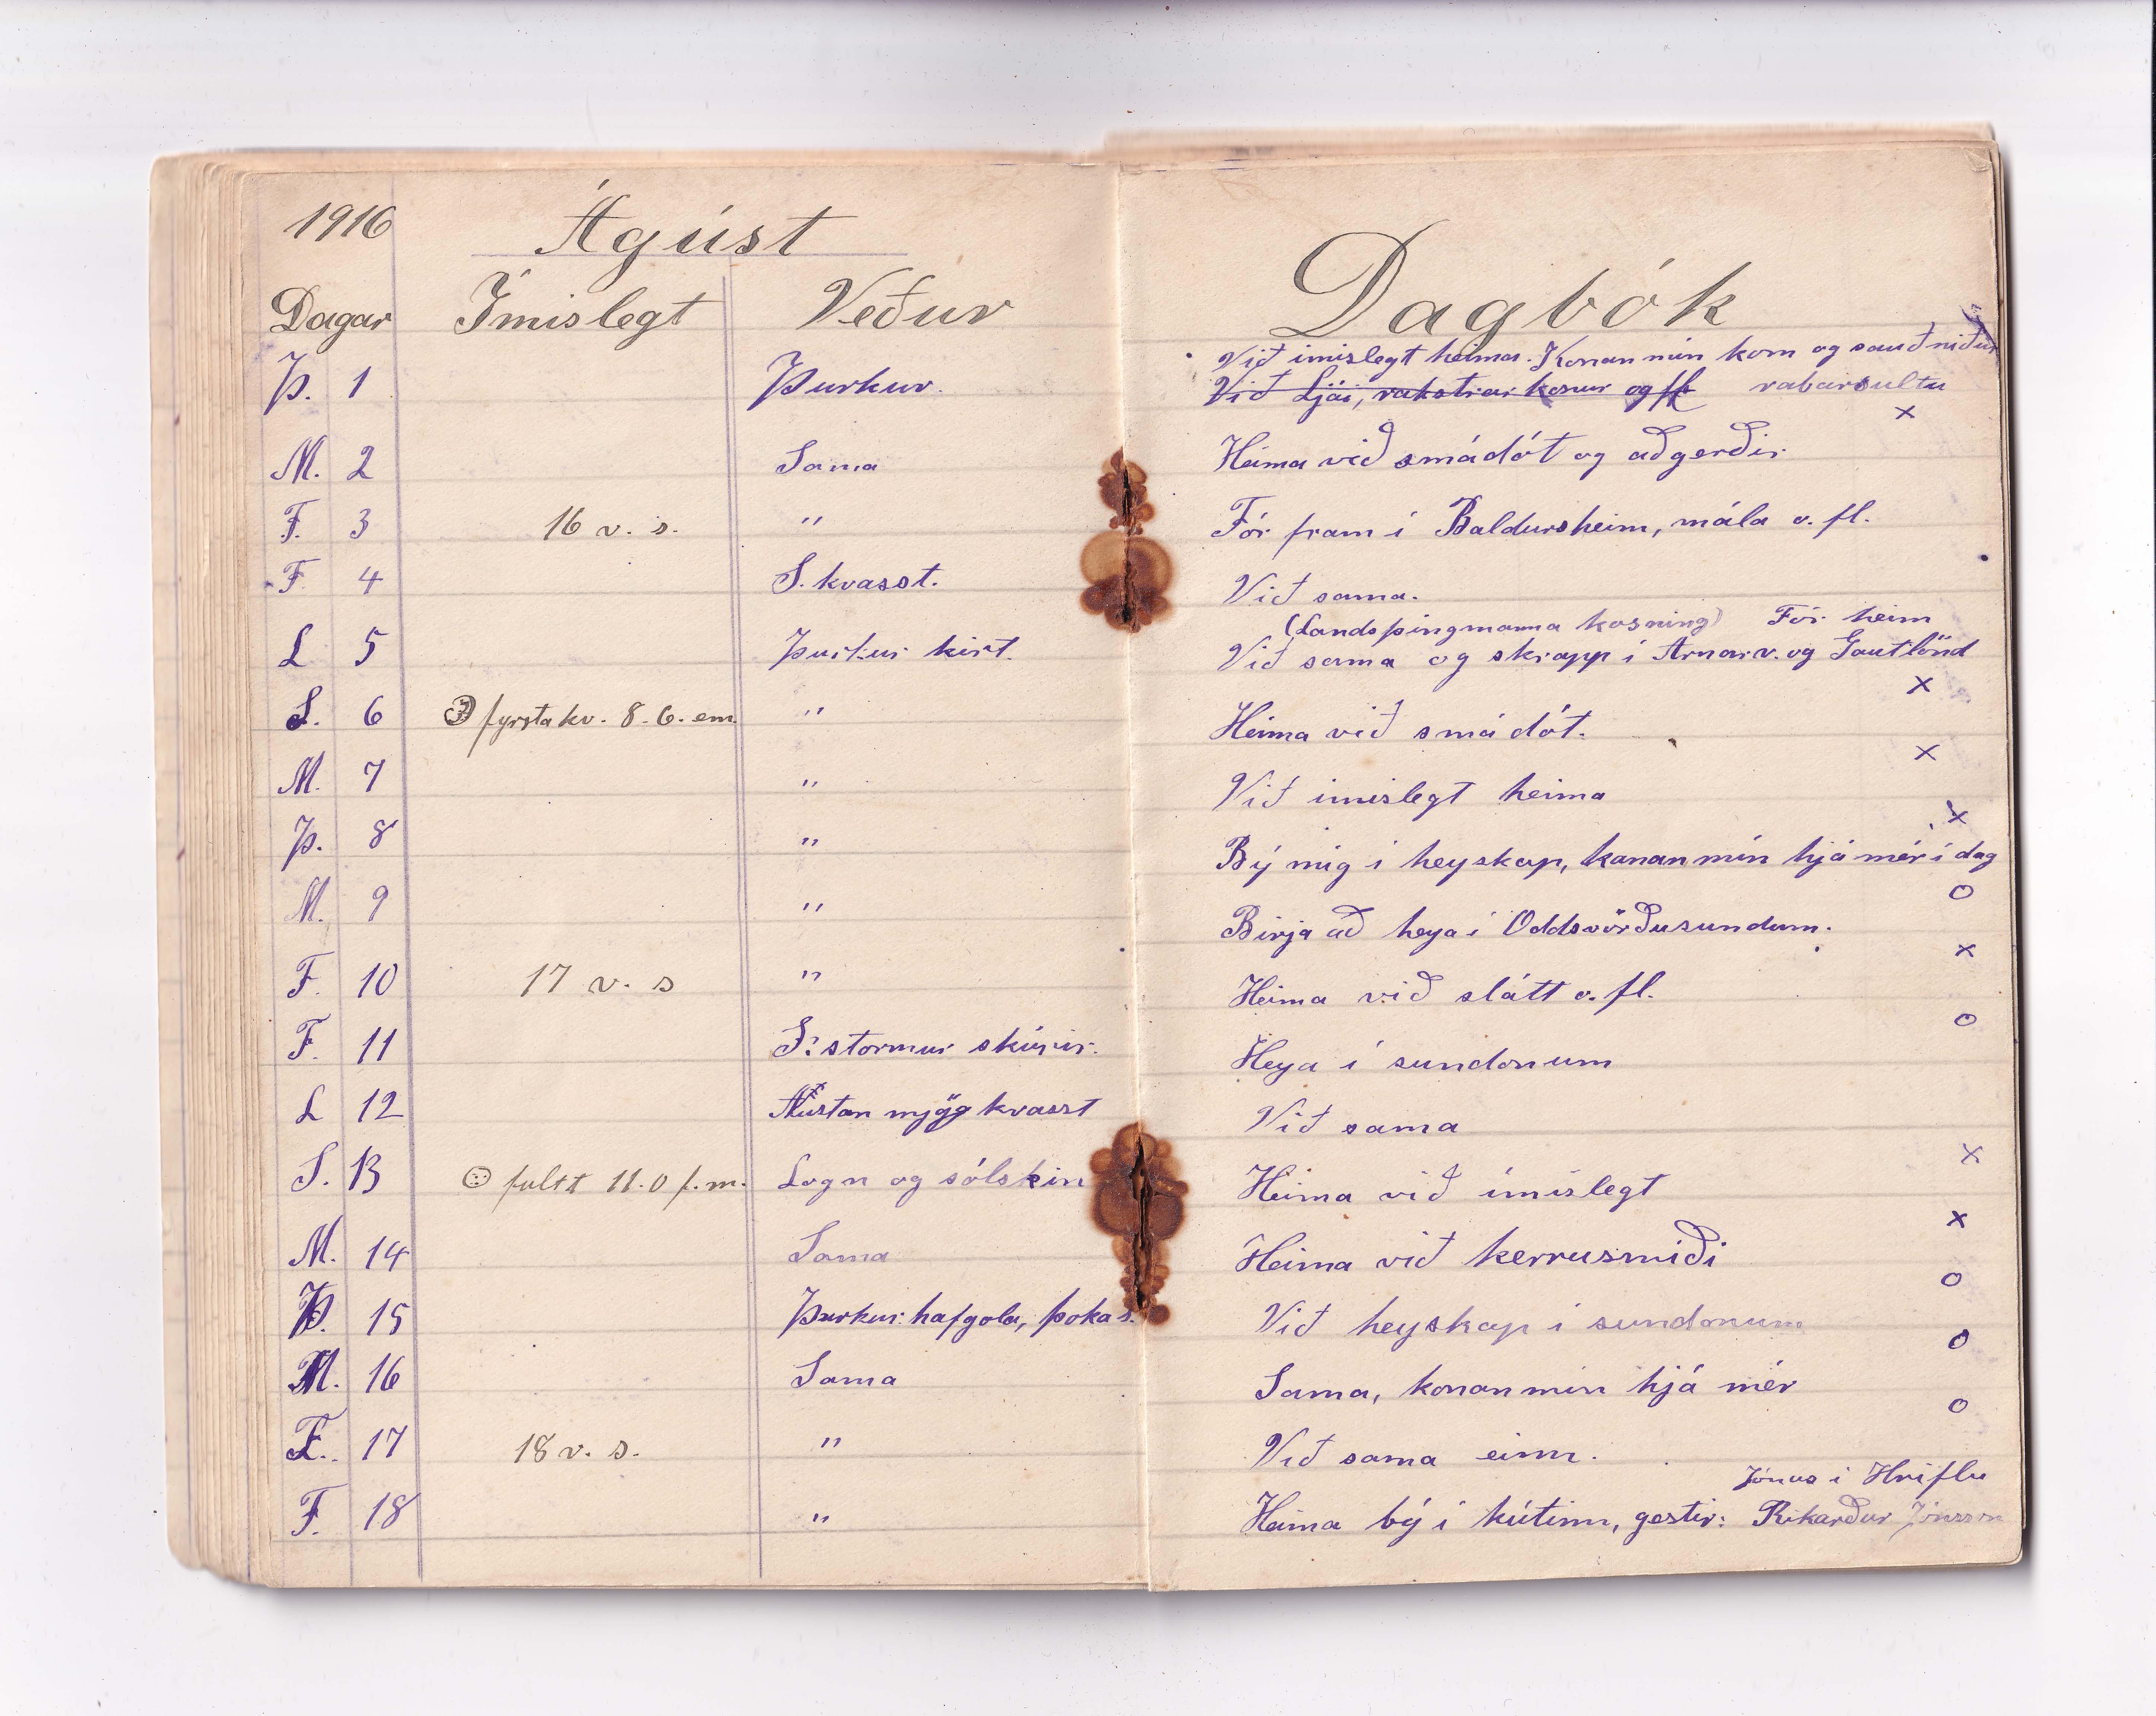 1916 Ágúst
Dagar Ímislegt Veður
Þ. 1 Þurkur.
M. 2 Sama
F. 3 16 v. s. "
F 4 S. kvasst.
L 5 Þurkur kirt.
S. 6 fyrsta kv. 8.6. em. "
M. 7 "
Þ. 8 "
M. 9 "
F. 10 17 v. s "
F. 11 S. stormur skúrir.
L 12 Austan mjög kvasst
S. 13 fullt 11.0 f.m. Logn og sólskin
M. 14 Sama
Þ. 15 Þurkur hafgola, þoka s.
M. 16 Sama
F. 17 18 v. s. "
F. 18 "
Dagbók
Við imislegt heima. Konan mín kom og sauð niður
Við Ljái, rakstrar konur og fl rabarsultu
x
Heima við smádót og aðgerðir
Fór fram í Baldursheim, mála o. fl.
Við sama.
(Landsþingmanna kosning) Fór heim
Við sama og skrapp í Arnarv. og Gautlönd
x
Heima við smádót.
x
Við imislegt heima
x
Bý mig í heyskap, kanan mín hjá mér í dag
o
Birja að heya í Oddsvörðusundum.
x
Heima við slátt o. fl.
o
Heya í sundonum
Við sama
x
Heima við ímislegt
x
Heima við kerrusmiði
o
Við heyskap í sundonum
o
Sama, konan mín hjá mér
o
Við sama einn.
Jónas í Hriflu
Heima bý í kútinn, gestir: Rikarður Jónsson